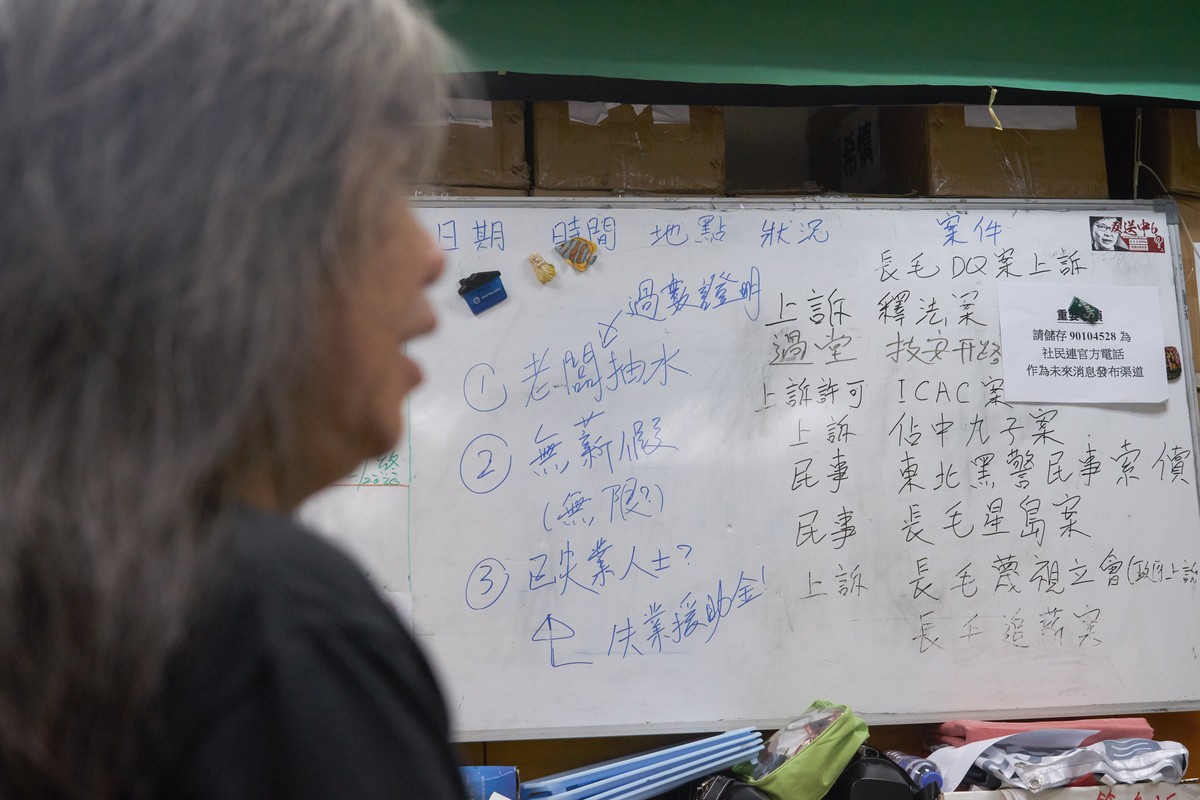 日期 時間 地點 狀況 案件
過數證明
① 老闆抽水
② 無薪假
(無限?)
③ 已失業人士?
失業援助金!
長毛DQ案上訴
上訴 釋法案
過堂
上訴許可 ICAC案
上訴 佔中九子案
民事 東北黑警民事索償
民事 長毛星島案
上訴 長毛蔑視立會(政府上訴
長毛追薪案
反送中
請儲存 90104528 為
社民連官方電話
作為未來消息發布渠道